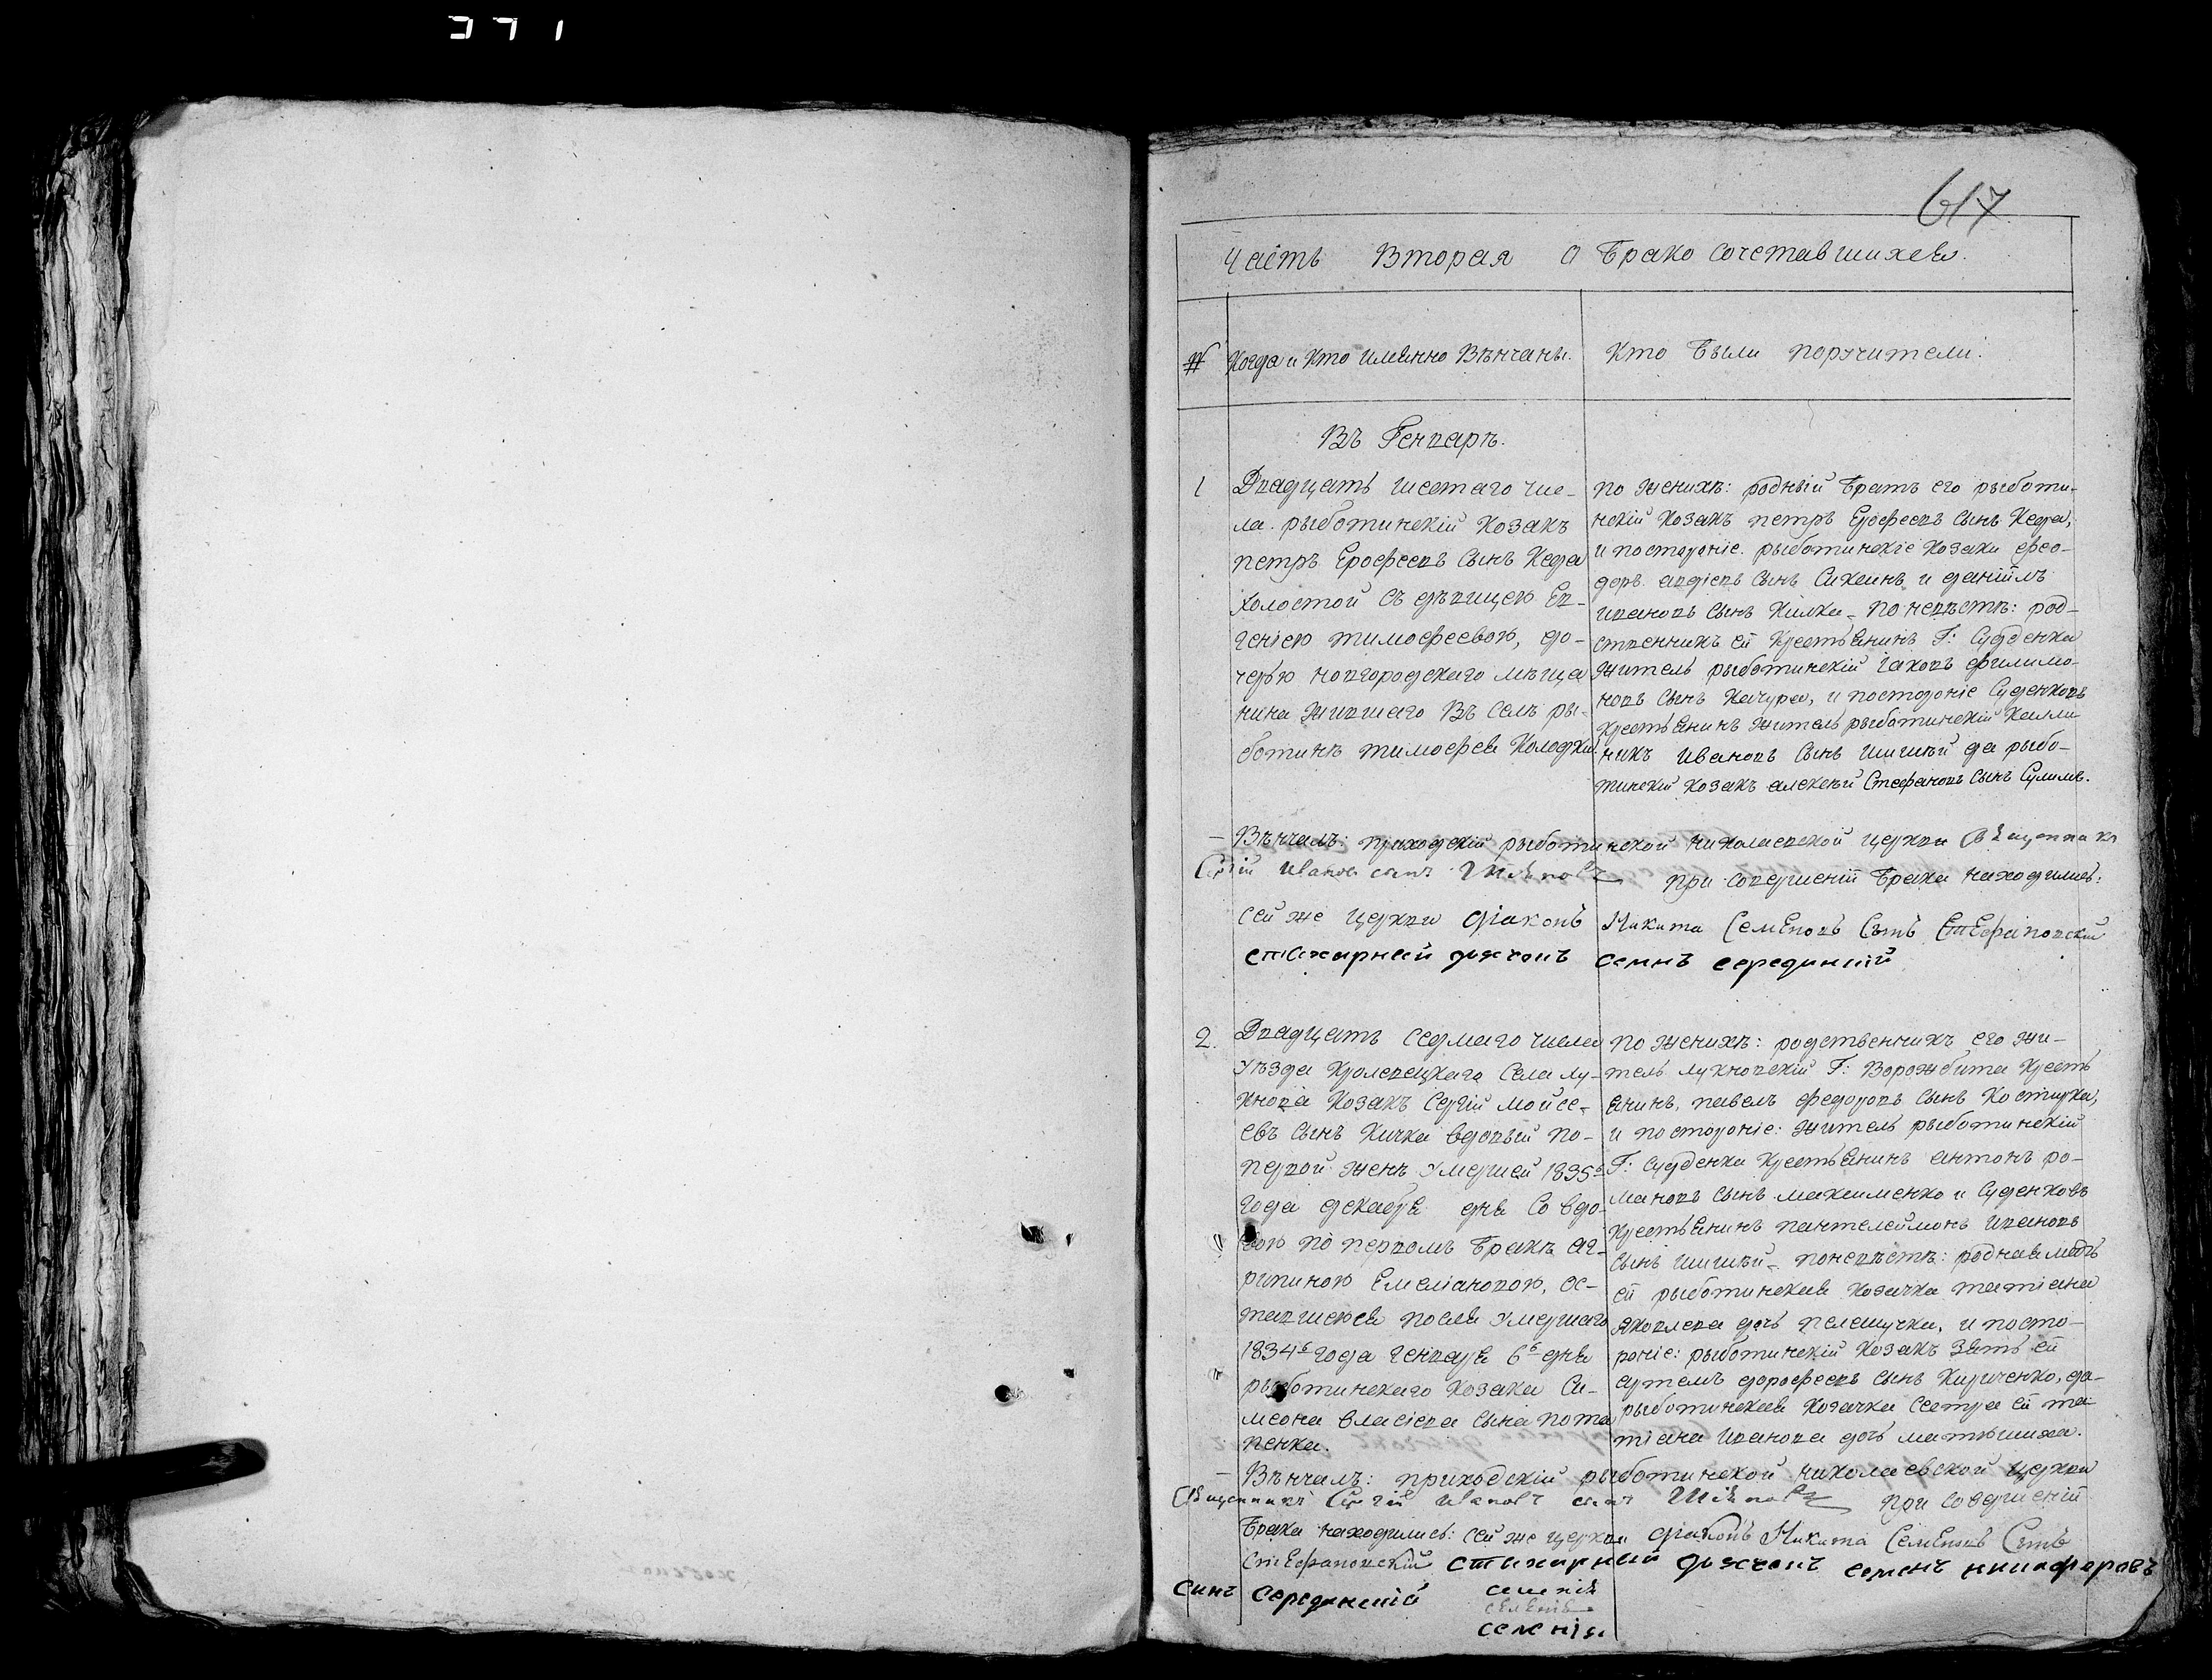 617
Часть Вторая О Брако сочетавшихся.
№ Когда и Кто имянно Вѣнчаны. Кто Были поручители.
Въ Генваръ.
1
Двадцать шестаго чис-
ла. рыботинскій Козакъ
петръ Ерофеевъ Сынъ Кеда
холостой съ дѣвицею Ев-
геніею тимофеевою, до-
черью новгородскаго мѣща
нина жившаго Въ Селѣ ры-
ботинѣ тимофея
по женихѣ: родный Братъ его рыботи-
нскій Козакъ петръ Ерофеевъ Сынъ Кеда,
и постороніе. рыботинскіе Козаки фео-
доръ авдіевъ Сынъ и даніилъ
ивановъ Сынъ Килка_ По невѣстѣ: род-
ственникъ ей Крестьянинъ Г: Судденка
житель рыботинскій іаковъ филимо-
новъ Сынъ Качура, и постороніе Суденковъ
Крестьянинъ житель рыботинскій Калли-
никъ Ивановъ Сынъ Шишкѣй да рыбо-
тинскій Козакъ алексѣй Стефановъ Сынъ Сулима.
— Вѣнчалъ: приходскій рыботинской николаевской церкви Священникъ
Сергій Ивановъ сынъ при совершеніи Брака находились:
сей же церкви діаконъ Никита Семеновъ Сынъ Стефановскій
стихарный дячокъ семнъ серединскій
2.
Двадцать седмаго числа
уѣзда Кролевецкаго Села лу-
кнова Козакъ Сергій мойсе-
евъ Сынъ Кичка вдовый по
первой женѣ умершей 1835го
года декабря дня Со вдо-
вою по первомъ Бракѣ аг-
рипиною Емеліановою, ос-
тавшеюся после умершаго
1834го года генваря 6го дня
рыботинскаго Козака Си-
меона власіева Сына пота
пенка.
по женихѣ: родственникъ его жи-
тель лукновскій Г: Ворожбита Кресть
янинъ, павелъ федоровъ Сынъ Костирка,
и постороніе: житель рыботинскій
Г: Судденка Крестьянинъ антонъ ро-
мановъ Сынъ максименко и Суденковъ
Крестьянинъ пантелеймонъ ивановъ
Сынъ Шишкѣй_ поневѣстѣ: родная мать
ей рыботинская козачка татіана
яковлева дочь пелешучка, и посто-
роніе: рыботинскій Козакъ Зять ей
артемъ дорофеевъ Сынъ Кириченко, да
рыботинская Козачка Сестра ей та-
тіана Иванова дочь матюшиха.
— Вѣнчалъ: приходскій рыботинской николаевской церкви
Священникъ Сергій Ивановъ сынъ при совершеніи
Брака находились: сей же церкви діаконъ Никита Семеновъ Сынъ
Стефановскій стихарный дячокъ семенъ никифоровъ
синъ серединскій